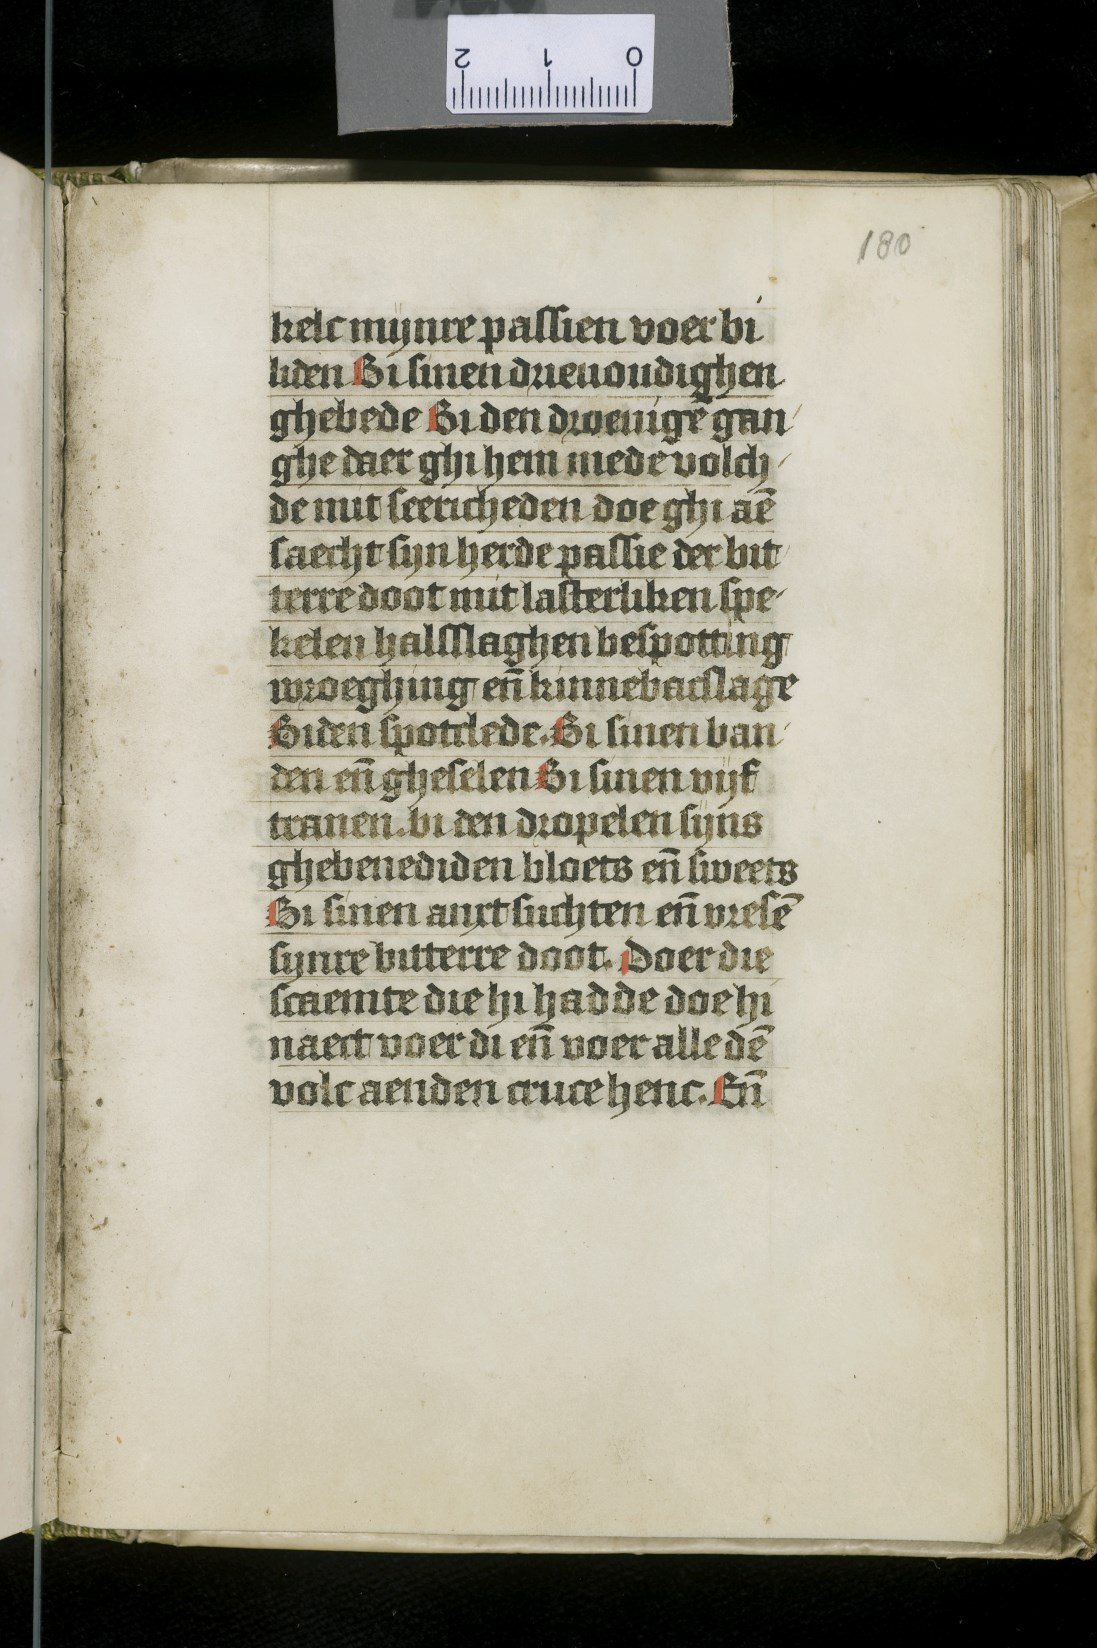 180
kelc mijnre passien voer bi
liden Bi sinen drieuoudighen
ghebede Bi den droeuigē gan
ghe daer ghi hem mede volch
de mit seericheden doe ghi aē
saecht sijn herde passie der bit
terre doot mit lasterliken spe
kelen halsslaghen bespotting
wroeghing en̄ kinnebacslage
Bi den spotclede. Bi sinen ban
den en̄ gheselen Bi sinen vijf
tranen. bi den dropelen sijns
ghebenediden bloets en̄ sweets
Bi sinen anxt suchten en̄ vresē
sijnre bitterre doot. Doer die
scaemte die hi hadde doe hi
naect voer di en̄ voer alle dē
volc aen den cruce henc. En̄
2 1 0